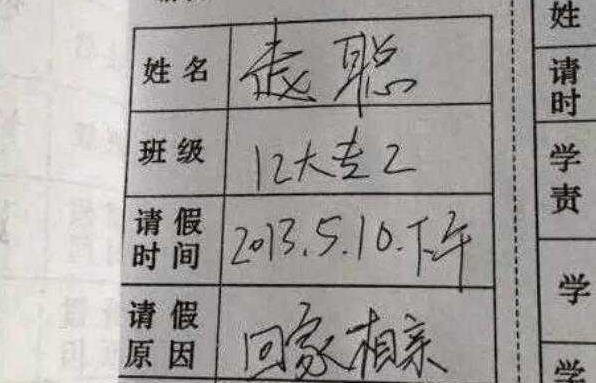 姓名 聪
班级 12大专2
请假时间 2013.5.10.下午
请假原因 回家相亲
姓
请时
学责
学
学